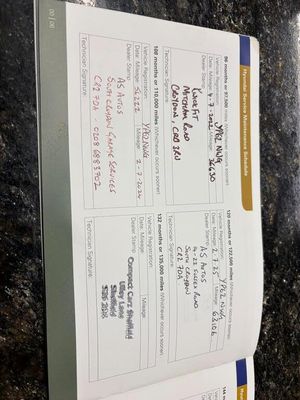 Hyundai Service Maintenance Schedule
96 months or 97,500 miles (Whichever occurs sooner)
Vehicle Registration:
Date:
Mileage: 36630
Dealer Stamp:
KWIK FIT
MITCHAM ROAD
CROYDON, CR0 3RU
Technician Signature:
108 months or 110,000 miles (Whichever occurs sooner)
Vehicle Registration: YP62 NWG
Date: Mileage: 2-7-2024
Dealer Stamp:
AS AUTOS
SOUTH CROYDON GARAGE SERVICES
CR2 7DA - 0208 6883302
Technician Signature:
120 months or 122,500 miles (Whichever occurs sooner)
Vehicle Registration: YP62 NWG
Date: 2.7.25 Mileage: 62106
Dealer Stamp:
AS AUTOS
SOUTH CROYDON
CR2 7DA
Technician Signature:
132 months or 135,000 miles (Whichever occurs sooner)
Vehicle Registration:
Date: Mileage:
Dealer Stamp:
Compact Cars Sheffield
Lane
Sheffield
Technician Signature: